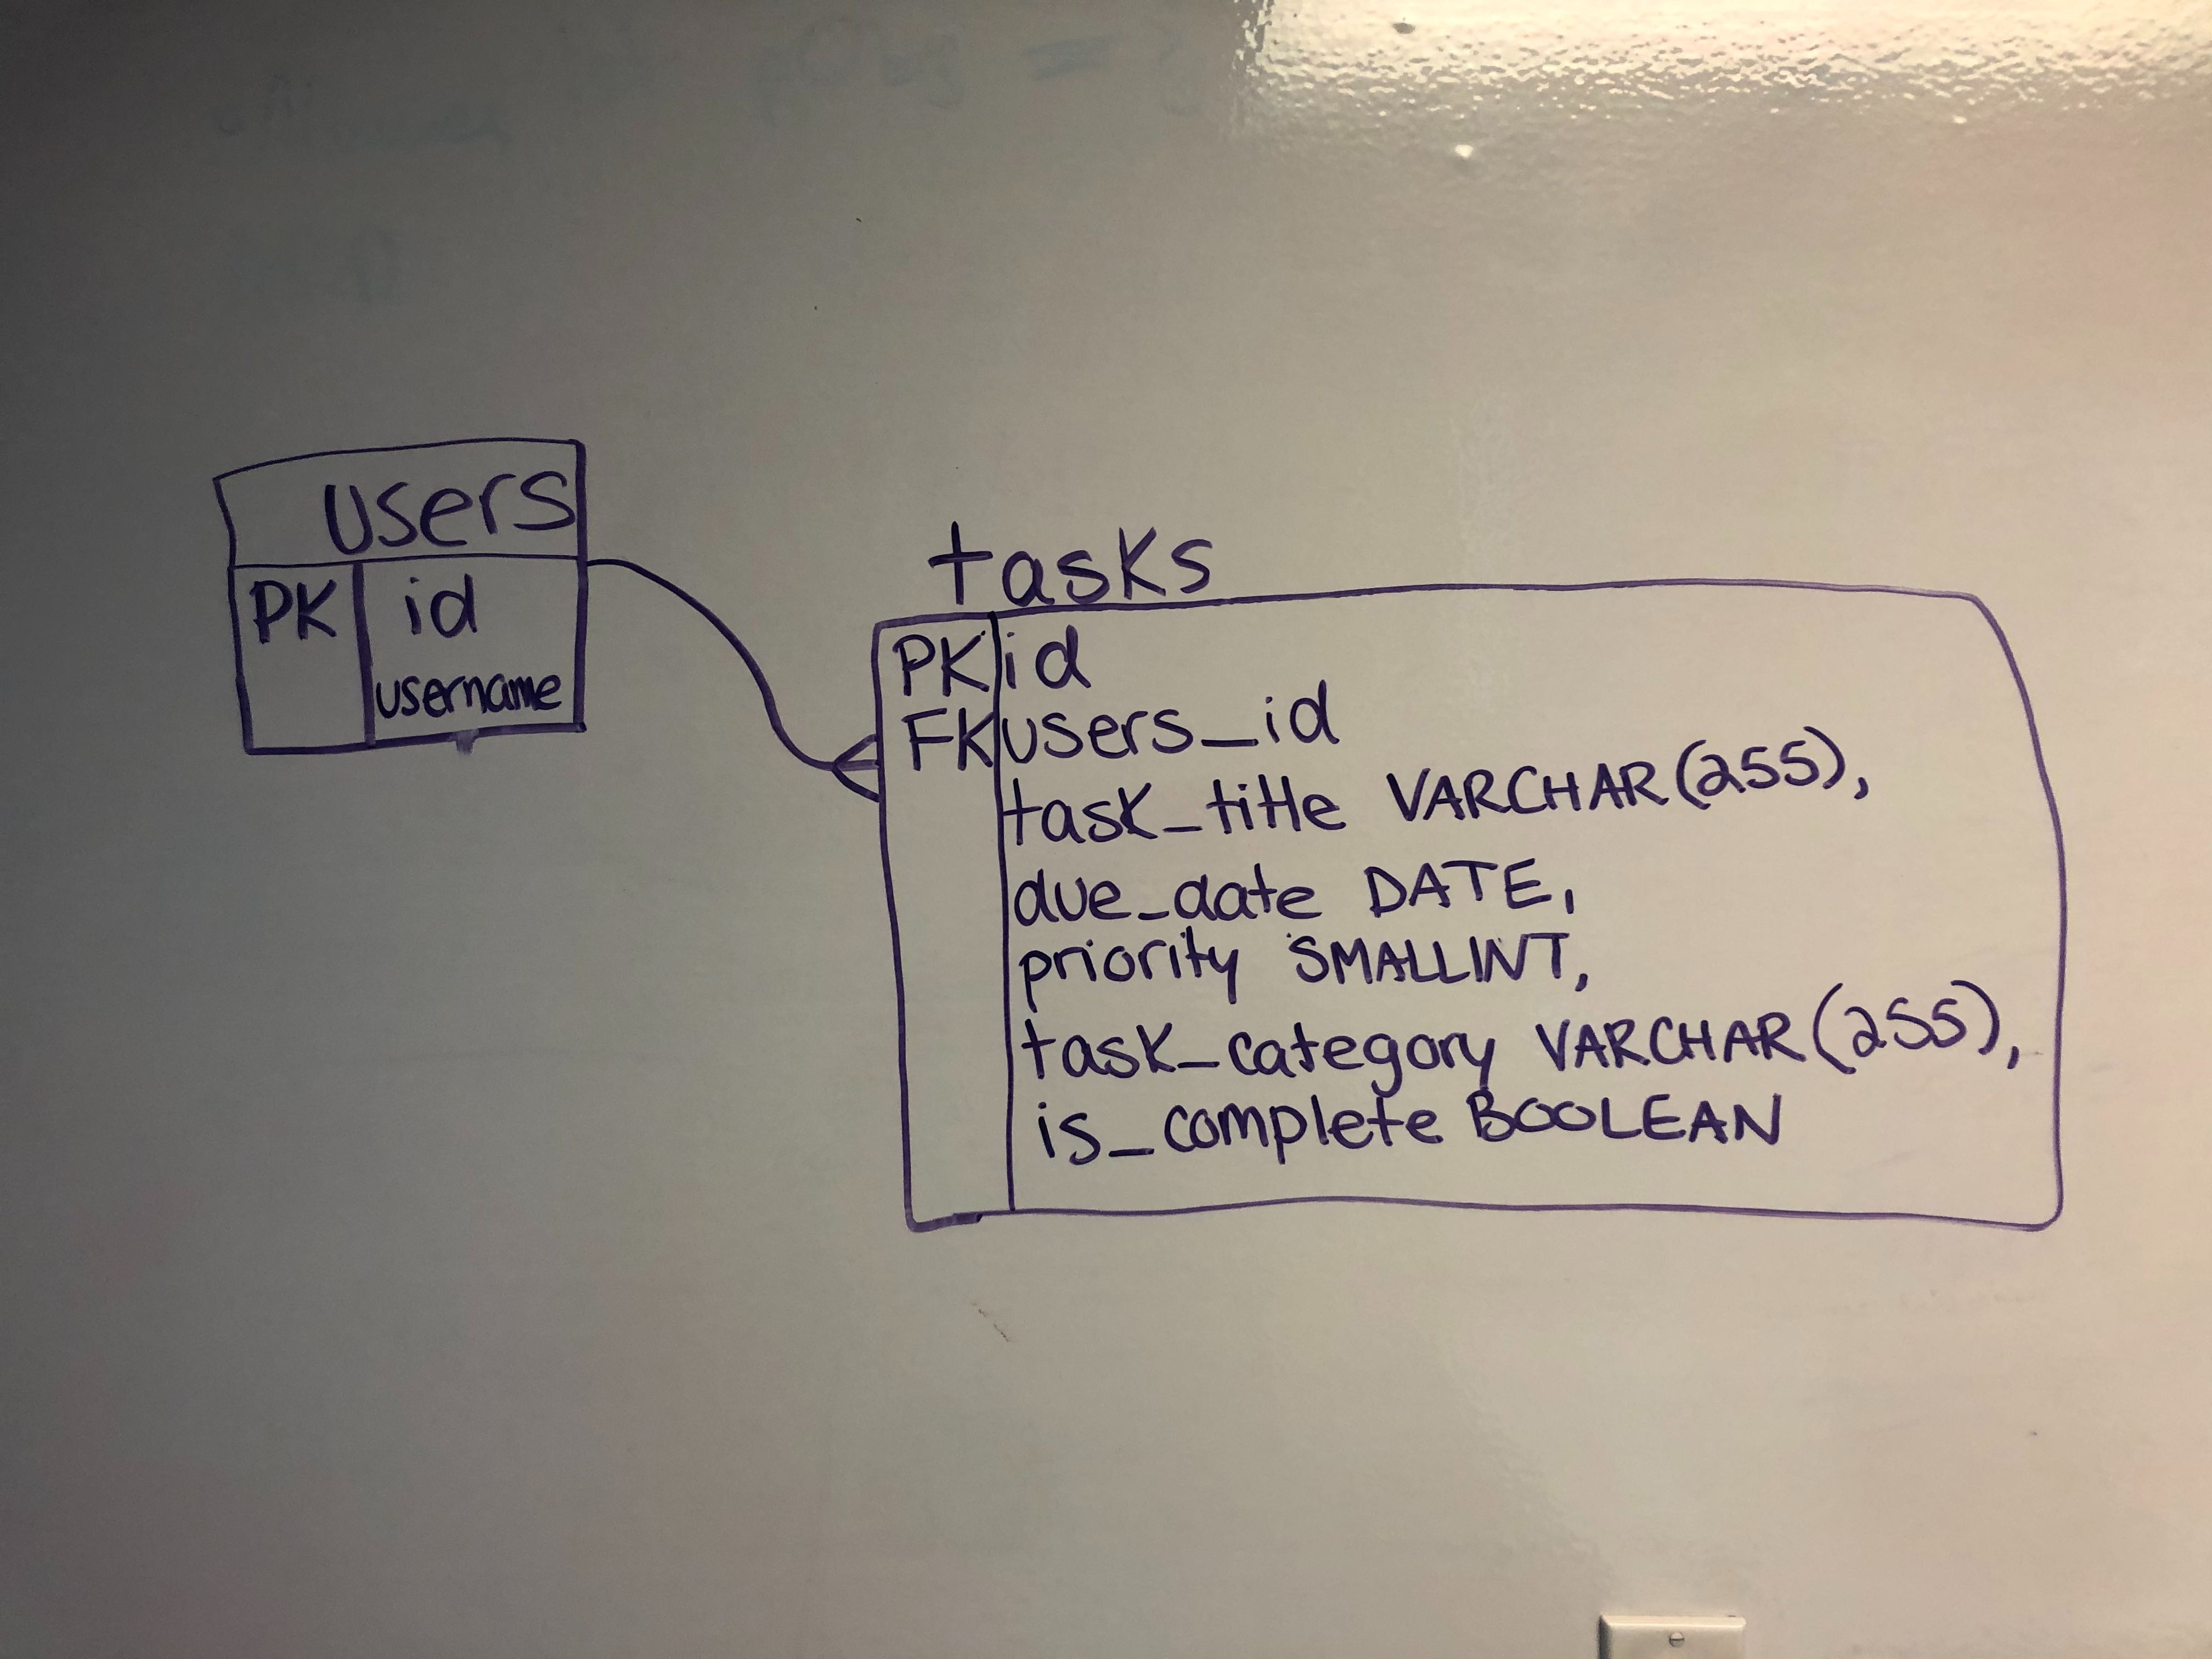 users
PK id
username
tasks
PK id
FK users_id
task_title VARCHAR(255),
due_date DATE,
priority SMALLINT,
task_category VARCHAR(255),
is_complete BOOLEAN